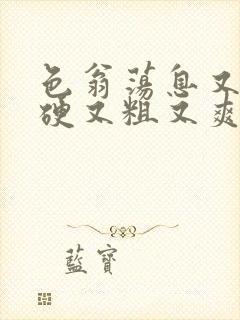 色翁荡息又
硬又粗又爽
藍寶